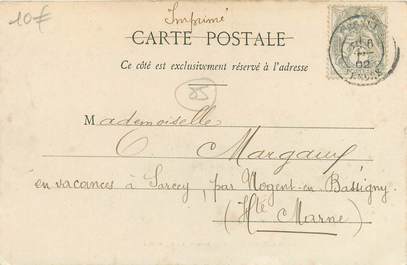 10€
Imprimé
CARTE POSTALE
Ce côté est exclusivement réservé à l'adresse
85
Mademoiselle
C. Margaux
en vacances à Sarcey, par Nogent-en-Bassigny
(Hte Marne)
02
VENDÉE